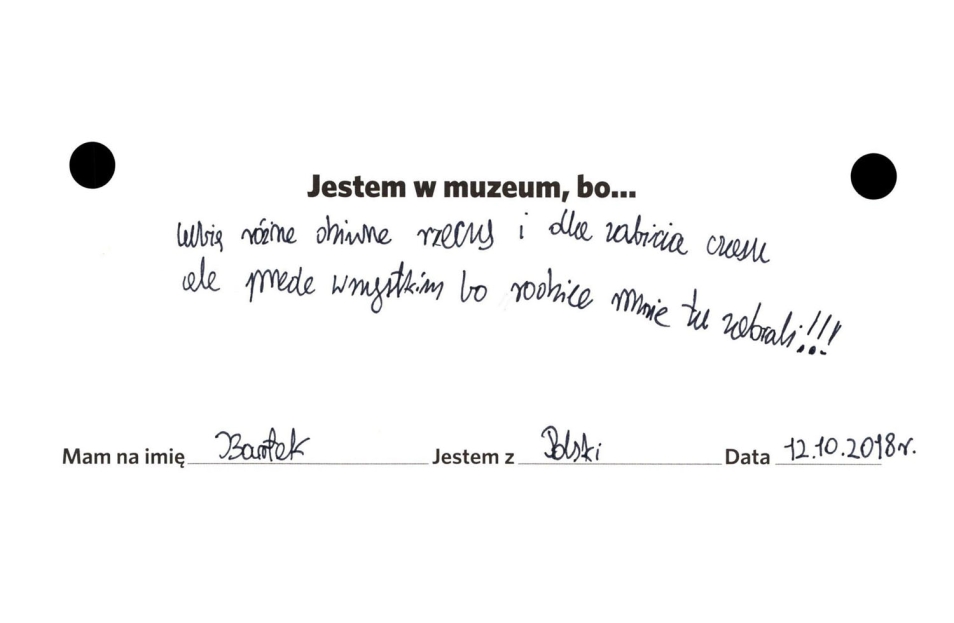 Jestem w muzeum, bo...
lubię różne dziwne rzeczy i dla zabicia czasu
ale przede wszystkim bo rodzice mnie tu zabrali!!!
Mam na imię Bartek Jestem z Polski Data 12.10.2018r.